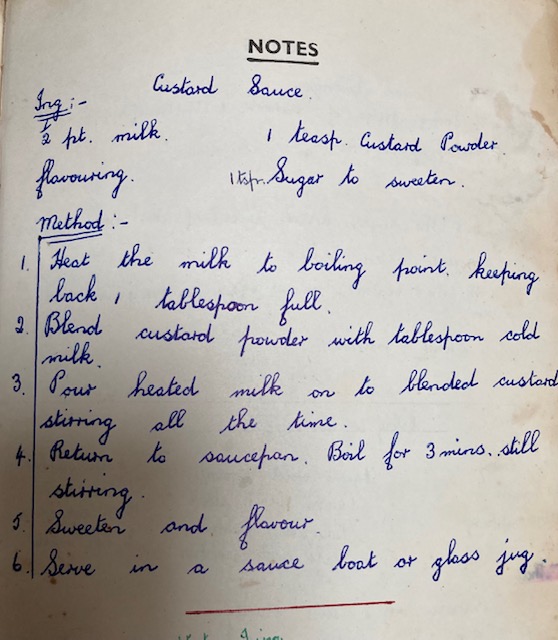 NOTES
Custard Sauce.
Ing:-
½ pt. milk. 1 teasp. Custard Powder
flavouring. 1 tsp. Sugar to sweeten.
Method:-
1. Heat the milk to boiling point. keeping
back 1 tablespoon full.
2. Blend custard powder with tablespoon cold
milk.
3 Pour heated milk on to blended custard
stirring all the time.
4. Return to saucepan. Boil for 3 mins. still
stirring.
5. Sweeten and flavour.
6. Serve in a sauce boat or glass jug.